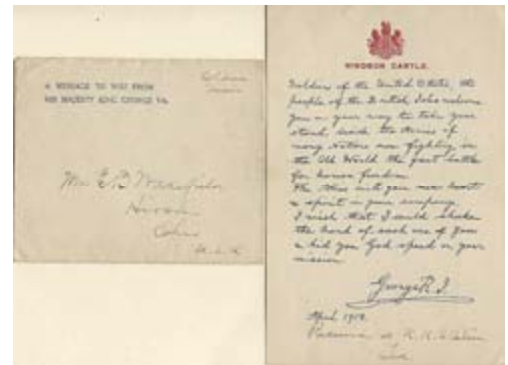 A MESSAGE TO YOU FROM
HIS MAJESTY KING GEORGE Vth.
Mr E. B. Wakefield
Hiram
Ohio
U.S.A.
WINDSOR CASTLE.
Soldiers of the United States, the
people of the British Isles welcome
you on your way to take your
stand beside the Armies of
many Nations now fighting in
the Old World the great battle
for human freedom.
The Allies will gain new heart
& spirit in your company.
I wish that I could shake
the hand of each one of you
& bid you God speed on your
mission.
George R.I.
April 1918.